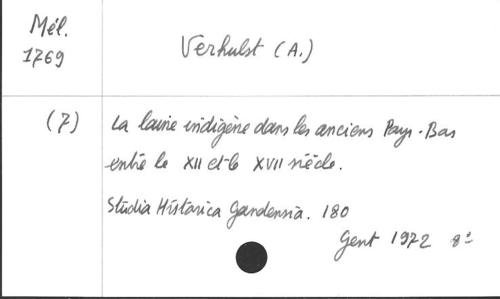 Mél.
1769
Verhulst (A.)
(7) La laine indigène dans les anciens Pays-Bas
entre le XII et le XVII siècle.
Studia Historica Gandensia. 180
Gent 1972 8°